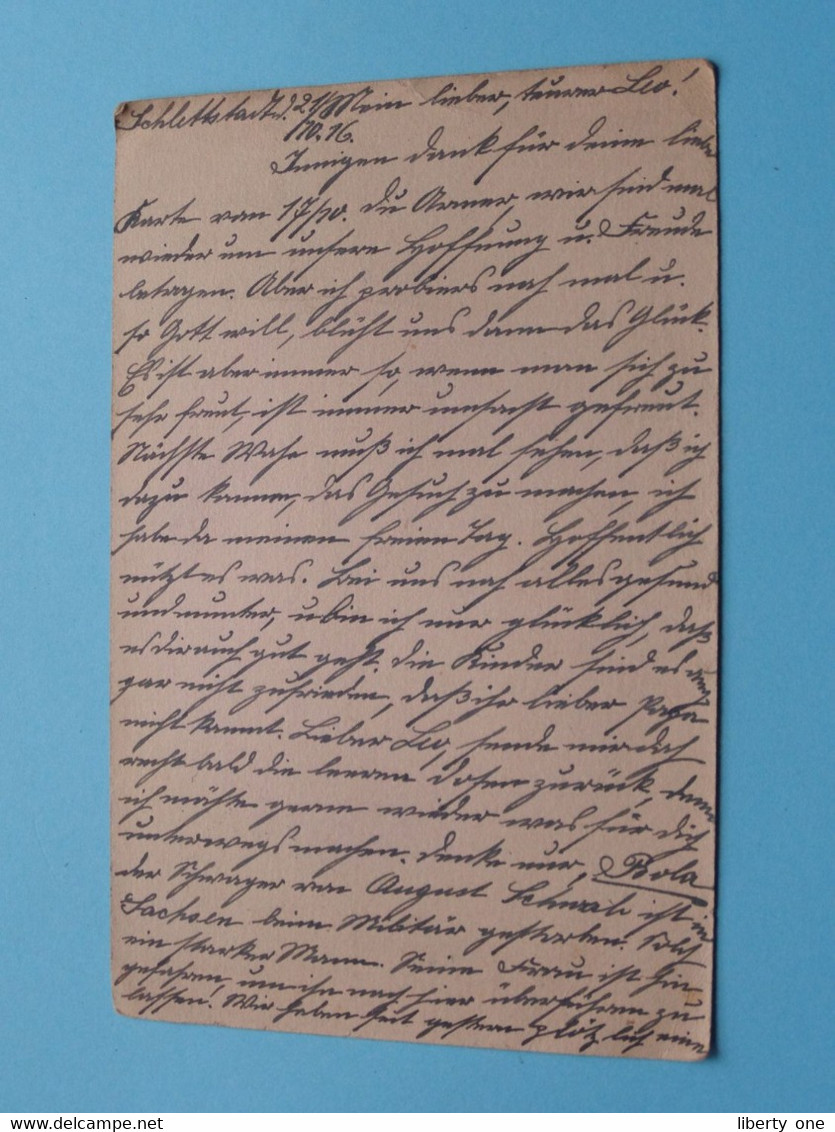 Schlettstadt d. 21/ Mein lieber, teurer Leo!
10.16.
Innigen Dank für deine liebe
Karte vom 17/10. du Armer, wir sind mal
wieder um unsere Hoffnung u. Freude
betrogen. Aber ich probiers noch mal u.
so Gott will, blüht uns dann das Glück.
Es ist aber immer so, wenn man sich zu
sehr freut, ist immer umsonst gefreut.
Nächste Woche muß ich mal sehen, daß ich
dazu komme, das Gesuch zu machen, ich
habe da meinen freien Tag. Hoffentlich
nützt es was. Bei uns noch alles gesund
und munter, u bin ich nur glücklich, daß
es dir auch gut geht. die Kinder sind es
gar nicht zufrieden, daß ihr lieber Papa
nicht kommt. Lieber Leo, sende mir doch
recht bald die leeren Dosen zurück, denn
ich möchte gerne wieder was für dich
unterwegs machen. denke nur, Bola
der Schwager von August Schwab ist in
Sachsen beim Militär gestorben. Solch
ein starker Mann. Seine Frau ist hin
gefahren, um ihn nach hier überführen zu
lassen. Wir haben seit gestern plötzlich eine
liberty one